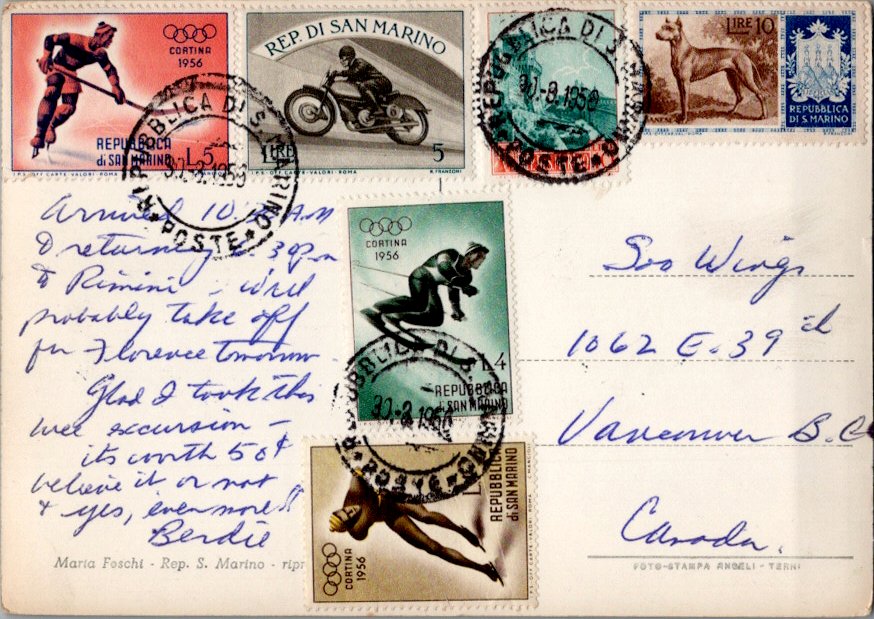 CORTINA
1956
REPUBBLICA
di SAN MARINO
L.5
I.P.S. OFF. CARTE-VALORI - ROMA
REP. DI SAN MARINO
LIRE 5
I.P.S. OFF. CARTE-VALORI - ROMA
R. FRANCHI
LIRE 10
REPUBBLICA
DI S. MARINO
REPUBBLICA DI S. MARINO
30.-8.1956
★ POSTE ★
REPUBBLICA DI S. MARINO
30.-8.1956
★ POSTE ★
Arrived 10. AM
& returning 3 pm
to Rimini - will
probably take off
for Florence tomorrow.
Glad I took this
wee excursion -
its worth 50¢
believe it or not
& yes, even more!!
Berdie
CORTINA
1956
L.4
REPUBBLICA
di SAN MARINO
REPUBBLICA DI S. MARINO
30.-8.1956
★ POSTE ★
REPUBBLICA
di SAN MARINO
CORTINA
1956
Soo Wings
1062 E. 39
Vancouver B.C
Canada.
Maria Foschi - Rep. S. Marino - ripr
FOTO-STAMPA ANGELI - TERNI